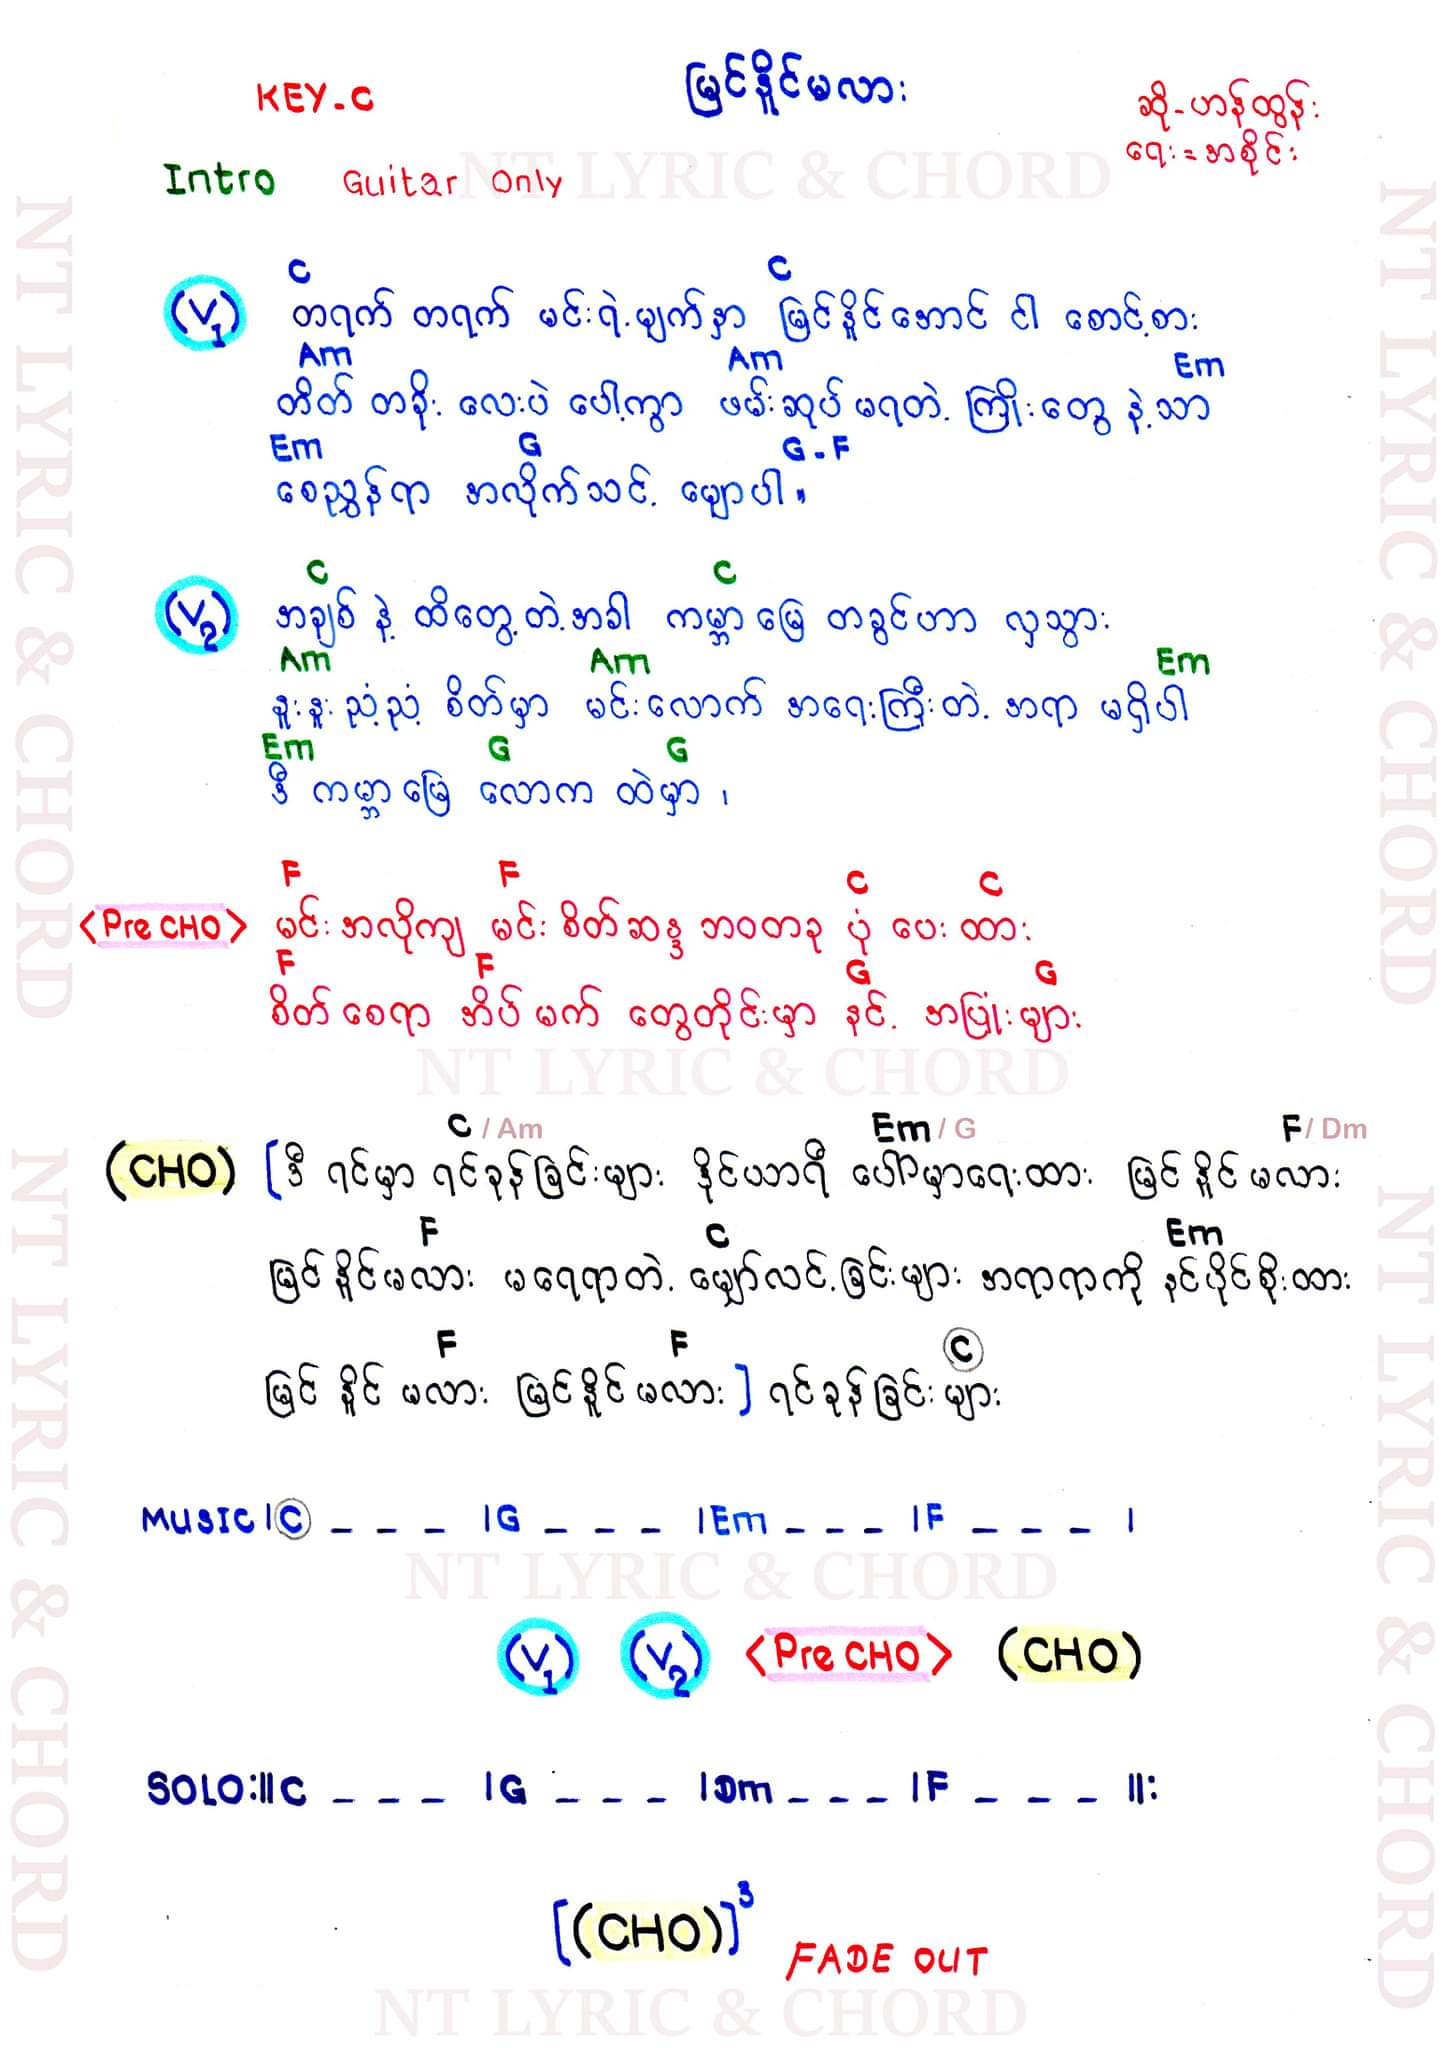 မြင်နိူင်မလား
KEY-C
ဆို-ဟန်ထွန်း
ရေး=အစိုင်း
Intro Guitar Only
NT LYRIC & CHORD
C C
(V1) တရက် တရက် မင်းရဲ့မျက်နှာ မြင်နိူင်အောင် ငါ စောင့်စား
Am Am Em
တိတ် တခိုး လေးပဲ ပေါ့ကွာ ဖမ်းဆုပ် မရတဲ့ ကြိုးတွေ နဲ့သာ
Em G G-F
စေညွှန်ရာ အလိုက်သင့် မျောပါ။
C C
(V2) အချစ် နဲ့ ထိတွေ့တဲ့အခါ ကမ္ဘာမြေ တခွင်ဟာ လှသွား
Am Am Em
နူးနူးညံ့ညံ့ စိတ်မှာ မင်းလောက် အရေးကြီးတဲ့ အရာ မရှိပါ
Em G G
ဒီ ကမ္ဘာမြေ လောက ထဲမှာ ၊
F F C C
<Pre CHO> မင်းအလိုကျ မင်းစိတ်ဆန္ဒ ဘဝတခု ပုံ ပေးထား
F F G G
စိတ်စေရာ အိပ်မက် တွေတိုင်းမှာ နင့် အပြုံးများ
NT LYRIC & CHORD
C / Am Em / G F / Dm
(CHO) [ဒီ ရင်မှာ ရင်ခုန်ခြင်းများ ဒိုင်ယာရီ ပေါ်မှာရေးထား မြင်နိူင်မလား
F C Em
မြင်နိူင်မလား မရေရာတဲ့ မျှော်လင့်ခြင်းများ အရာရာကို နင်ပိုင်စိုးထား
F F C
မြင်နိူင် မလား မြင်နိူင်မလား] ရင်ခုန်ခြင်းများ
MUSIC |C _ _ _ |G _ _ _ |Em _ _ _ |F _ _ _ |
NT LYRIC & CHORD
(V1) (V2) <Pre CHO> (CHO)
SOLO:||C _ _ _ |G _ _ _ |Dm _ _ _ |F _ _ _ ||:
[(CHO)]3 FADE OUT
NT LYRIC & CHORD
NT LYRIC & CHORD
NT LYRIC & CHORD
NT LYRIC & CHORD
NT LYRIC & CHORD